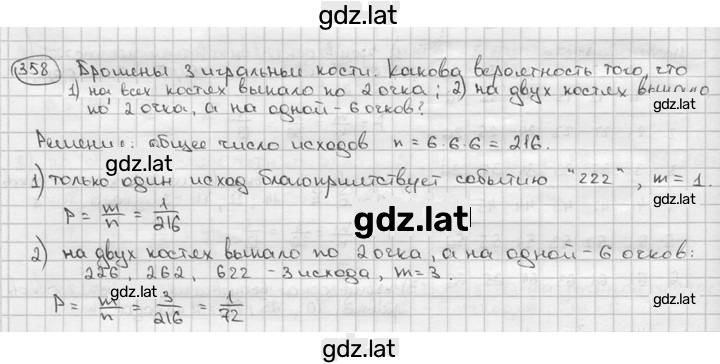 gdz.lat
358 Брошены 3 игральные кости. Какова вероятность того, что
1) на всех костях выпало по 2 очка; 2) на двух костях выпало
по 2 очка, а на одной - 6 очков?
gdz.lat
Решение: общее число исходов n = 6·6·6 = 216.
gdz.lat
1) только один исход благоприятствует событию "222", m = 1.
P = m/n = 1/216
gdz.lat
gdz.lat
2) на двух костях выпало по 2 очка, а на одной - 6 очков:
226, 262, 622 - 3 исхода, m = 3.
gdz.lat
gdz.lat
P = m/n = 3/216 = 1/72
gdz.lat